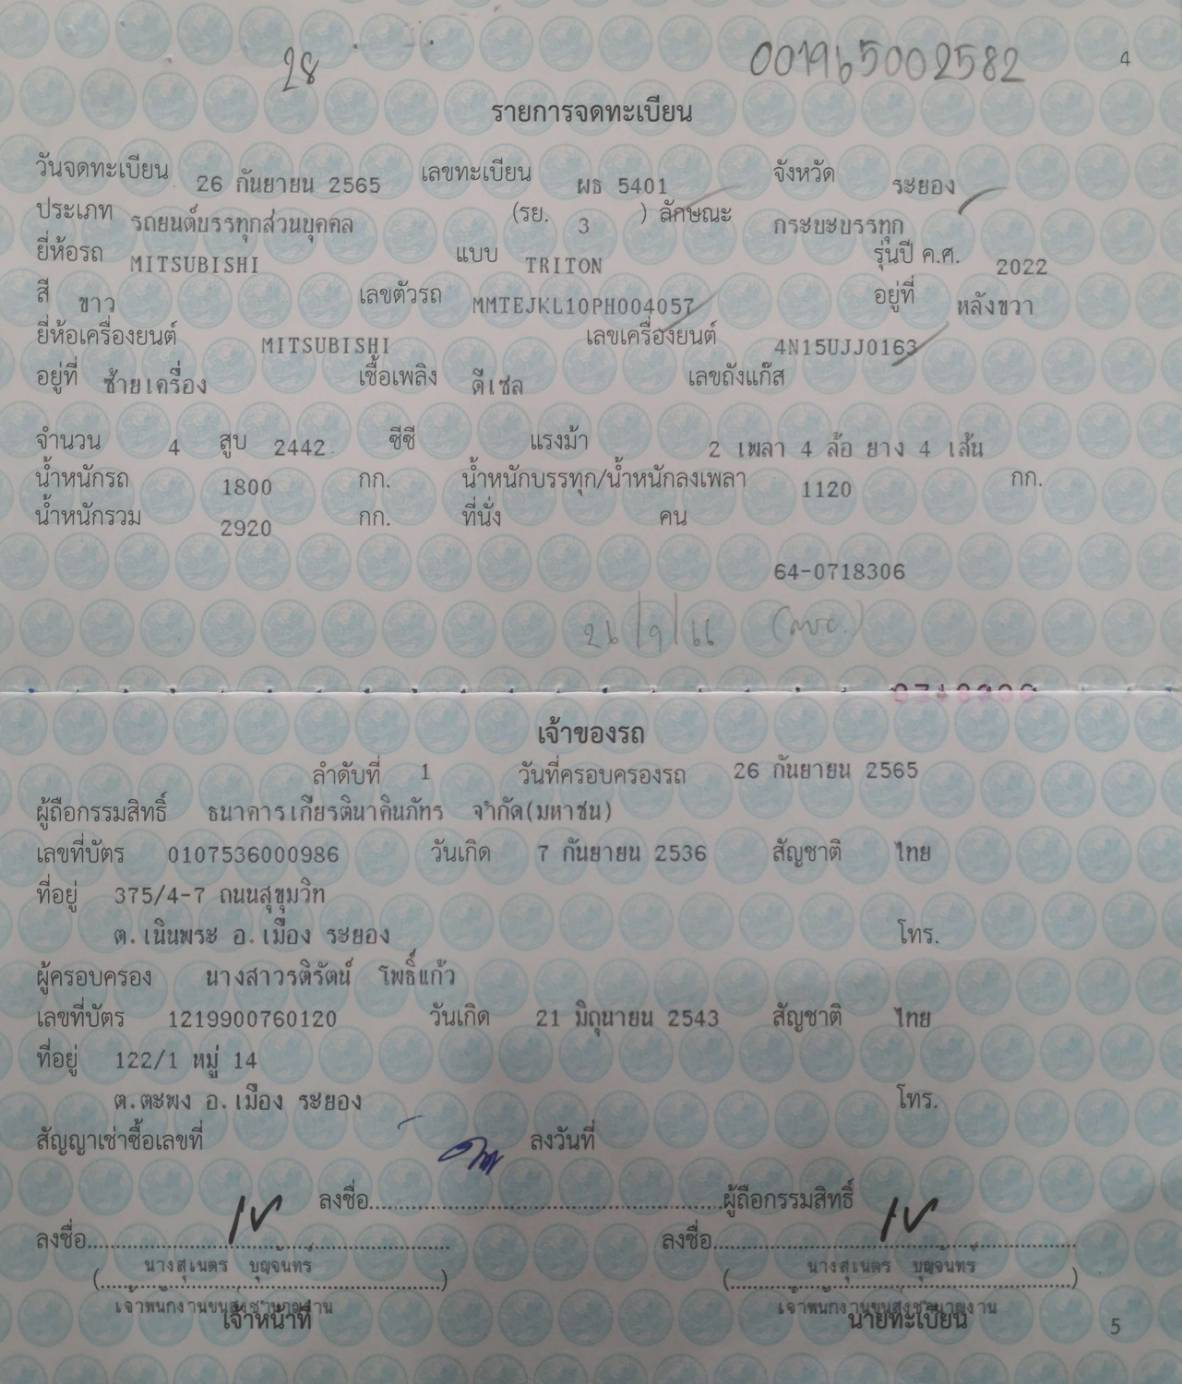 28 001965002582 4
รายการจดทะเบียน
วันจดทะเบียน 26 กันยายน 2565 เลขทะเบียน ผธ 5401 จังหวัด ระยอง
ประเภท รถยนต์บรรทุกส่วนบุคคล (รย. 3 ) ลักษณะ กระบะบรรทุก
ยี่ห้อรถ MITSUBISHI แบบ TRITON รุ่นปี ค.ศ. 2022
สี ขาว เลขตัวรถ MMTEJKL10PH004057 อยู่ที่ หลังขวา
ยี่ห้อเครื่องยนต์ MITSUBISHI เลขเครื่องยนต์ 4N15UJJ0163
อยู่ที่ ซ้ายเครื่อง เชื้อเพลิง ดีเซล เลขถังแก๊ส
จำนวน 4 สูบ 2442 ซีซี แรงม้า 2 เพลา 4 ล้อ ยาง 4 เส้น
น้ำหนักรถ 1800 กก. น้ำหนักบรรทุก/น้ำหนักลงเพลา 1120 กก.
น้ำหนักรวม 2920 กก. ที่นั่ง คน
64-0718306
26/9/65
เจ้าของรถ
ลำดับที่ 1 วันที่ครอบครองรถ 26 กันยายน 2565
ผู้ถือกรรมสิทธิ์ ธนาคารเกียรตินาคินภัทร จำกัด(มหาชน)
เลขที่บัตร 0107536000986 วันเกิด 7 กันยายน 2536 สัญชาติ ไทย
ที่อยู่ 375/4-7 ถนนสุขุมวิท
ต.เนินพระ อ.เมือง ระยอง โทร.
ผู้ครอบครอง นางสาวรติรัตน์ โพธิ์แก้ว
เลขที่บัตร 1219900760120 วันเกิด 21 มิถุนายน 2543 สัญชาติ ไทย
ที่อยู่ 122/1 หมู่ 14
ต.ตะพง อ.เมือง ระยอง โทร.
สัญญาเช่าซื้อเลขที่ ลงวันที่
ลงชื่อ ผู้ถือกรรมสิทธิ์
ลงชื่อ ลงชื่อ
(นางสุเนตร บุญจันทร) (นางสุเนตร บุญจันทร)
เจ้าพนักงานขนส่งชำนาญงาน เจ้าพนักงานขนส่งชำนาญงาน
เจ้าหน้าที่ นายทะเบียน 5